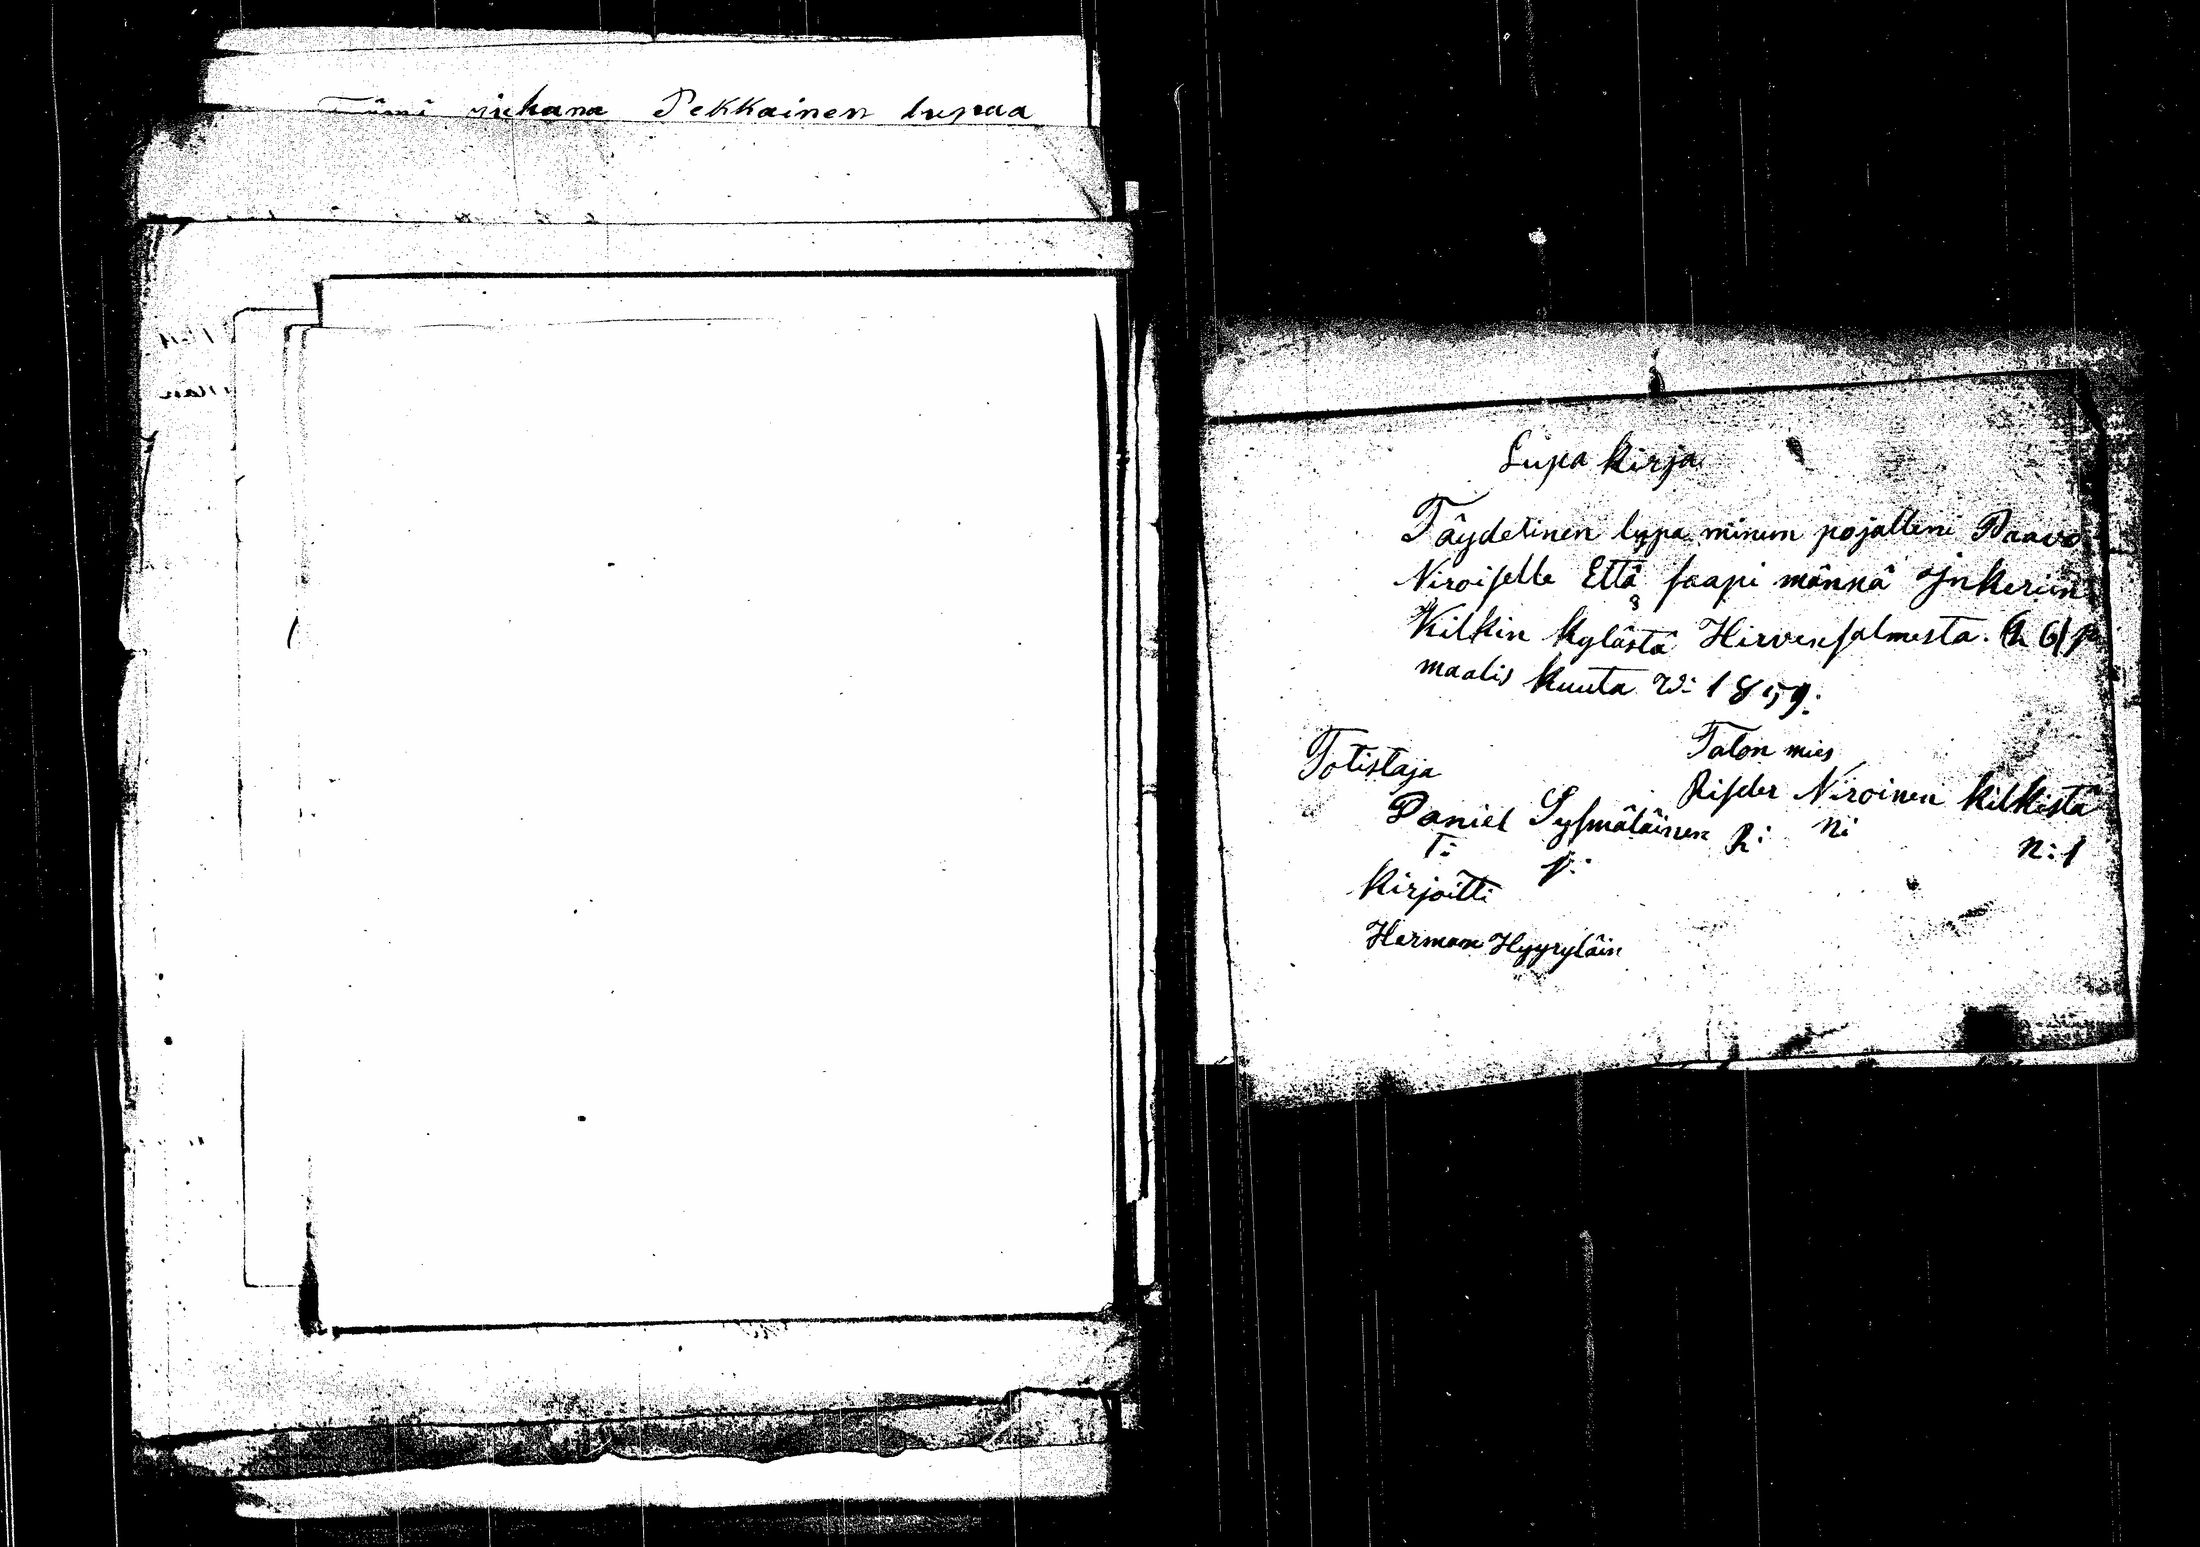 Pekkainen lupaa
Lupa kirja
Täydelinen lupa minun pojalleni Paavo
Niroiselle Että saapi männä Inkeriin
Kilkin kylästä Hirvensalmesta. 6 p
maalis kuuta W: 1859:
Totistaja
Talon mies
Risder Niroinen kilkistä
Daniel Sysmäläinen R: Ni
N: 1
Kirjoitti
Herman Hyyryläin